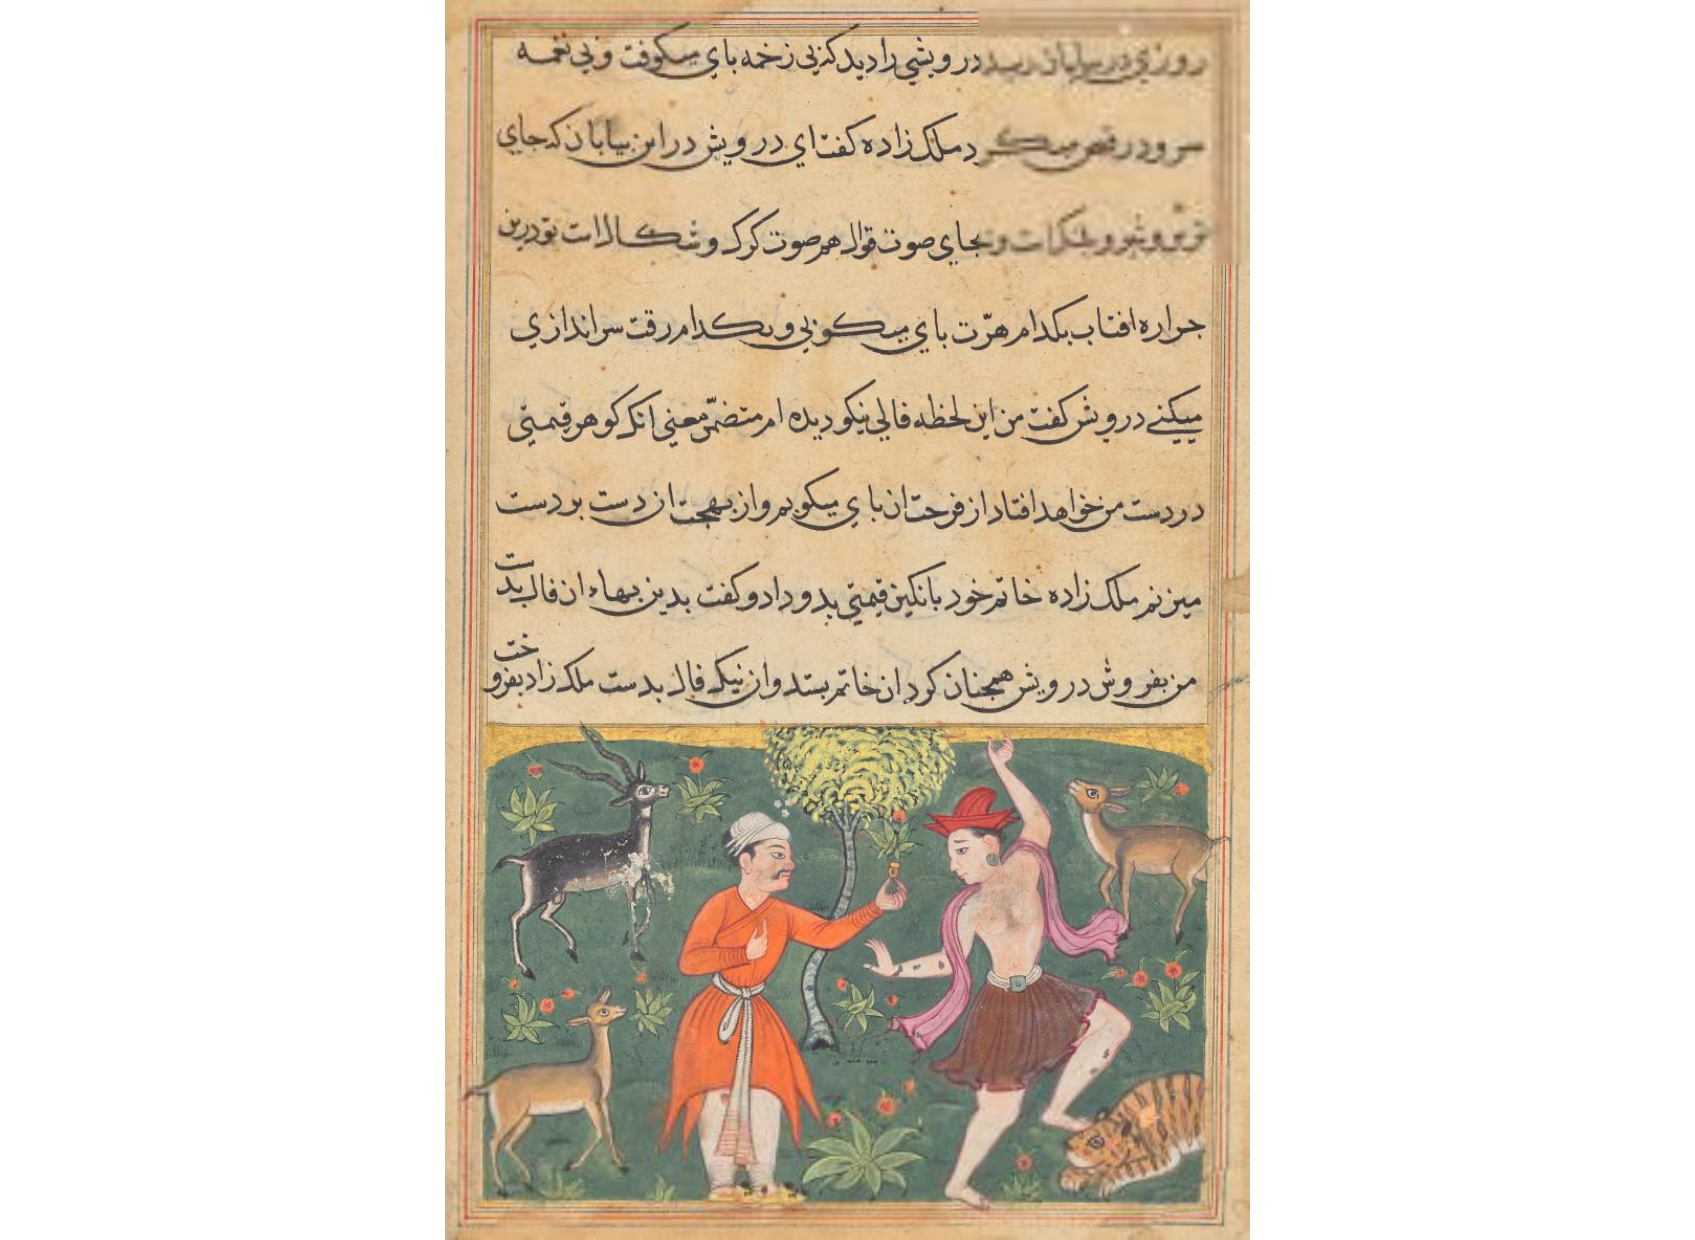 درویشي را دید که بي زخمه باي میکوفت و بي نغمه
د ملک زاده کفت اي درویش در این بیابان که جاي
بجاي صوت قوال هم صوت کرک و شکال است تو درین
حراره افتاب بکدام هزّت باي میکوبي و بکدام رقت سراندازي
میکنے درویش کفت من این لحظه فالي نیکو دیده ام متضمّن معني انکه کوهر قیمتي
در دست من خواهد افتاد از فرحت ان باي میکوبم و از بهجت ان دست بر دست
میزنم ملک زاده خاتم خود با نکین قیمتي بدو داد و کفت بدین بهاء ان فال بدست
من بفروش درویش همجنان کرد ان خاتم بستد و ان نیک فال بدست ملک زاد بفروخت